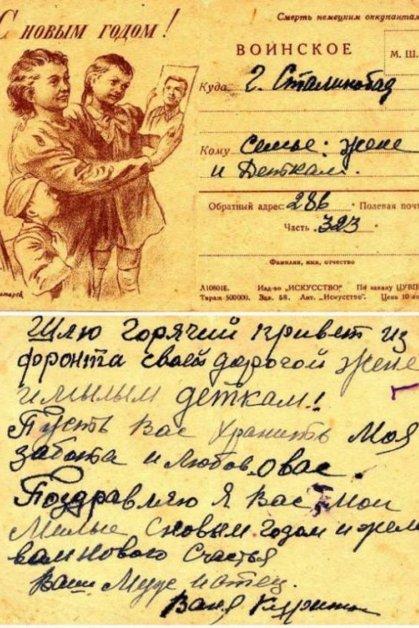 С НОВЫМ ГОДОМ!
Смерть немецким оккупантам
ВОИНСКОЕ
М. Ш.
Куда г. Сталинобад
Кому Семье: жене
и Деткам.
Обратный адрес: 286 Полевая почт
Часть 323
Фамилия, имя, отчество
А10601Б. Изд-во „ИСКУССТВО" По заказу ЦУВП
Тираж 500000. Зак. 58. Лит. „Искусство". Цена 10
Шлю горячий привет из
фронта своей дорогой жене
и милым деткам!
Пусть Вас хранить моя
забота и любов о вас.
Поздравляю я Вас мои
милые с новым годом и жел
вам нового счастья
Ваш Муж и отец.
Ваня